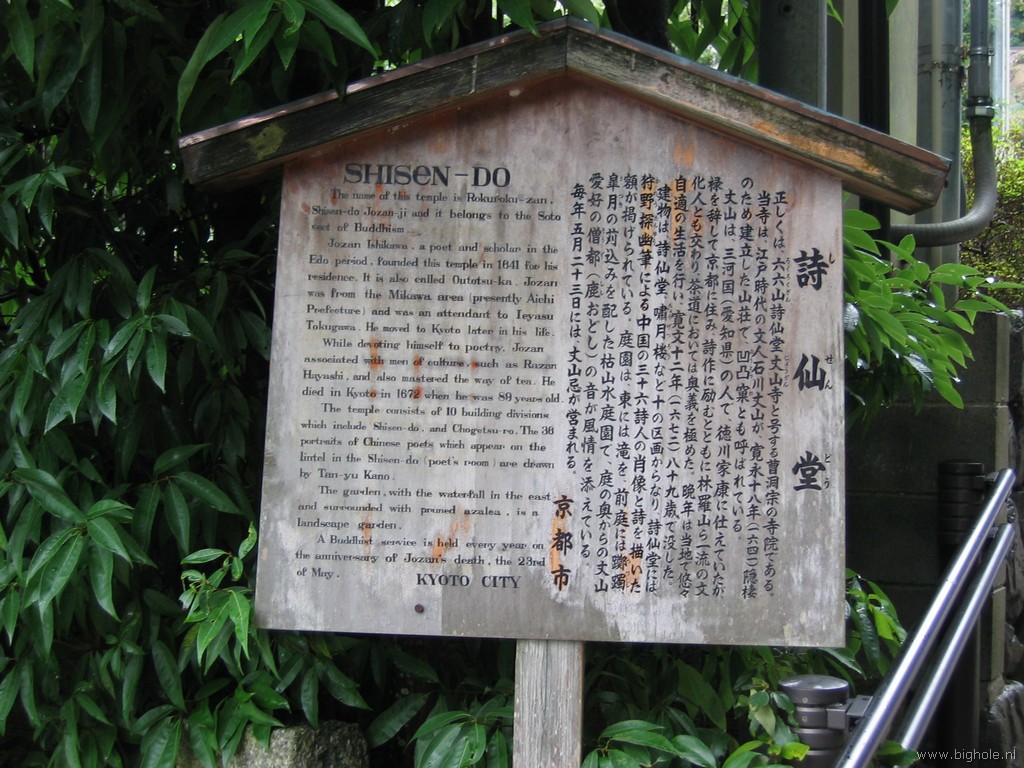 SHISEN-DO
The name of this temple is Rokuroku-zan,
Shisen-do Jozan-ji and it belongs to the Soto
sect of Buddhism.
Jozan Ishikawa, a poet and scholar in the
Edo period, founded this temple in 1641 for his
residence. It is also called Outotsu-ka. Jozan
was from the Mikawa area (presently Aichi
Preefecture) and was an attendant to Ieyasu
Tokugawa. He moved to Kyoto later in his life.
While devoting himself to poetry, Jozan
associated with men of culture, such as Razan
Hayashi, and also mastered the way of tea. He
died in Kyoto in 1672 when he was 89 years old.
The temple consists of 10 building divisions
which include Shisen-do, and Chogetsu-ro. The 36
portraits of Chinese poets which appear on the
lintel in the Shisen-do (poet's room) are drawn
by Tan-yu Kano.
The garden, with the waterfall in the east
and surrounded with pruned azalea, is a
landscape garden.
A Buddhist service is held every year on
the anniversary of Jozan's death, the 23rd
of May.
KYOTO CITY
詩仙堂
しせんどう
正しくは、六六山詩仙堂丈山寺と号する曹洞宗の寺院である。
当寺は、江戸時代の文人石川丈山が、寛永十八年(一六四一)隠棲
のため建立した山荘で、凹凸窠とも呼ばれている。
丈山は、三河国(愛知県)の人で、徳川家康に仕えていたが
禄を辞して京都に住み、詩作に励むとともに林羅山ら一流の文
化人とも交わり、茶道においては奥義を極めた。晩年は当地で悠々
自適の生活を行い、寛文十二年(一六七二)八十九歳で没した。
建物は、詩仙堂、嘯月楼など十の区画からなり、詩仙堂には
狩野探幽筆による中国の三十六詩人の肖像と詩を描いた
額が掲げられている。庭園は、東には滝を、前庭には躑躅
皐月の苅込みを配した枯山水庭園で、庭の奥からの丈山
愛好の僧都(鹿おどし)の音が風情を添えている。
毎年五月二十三日には、丈山忌が営まれる。
京都市
www.bighole.nl